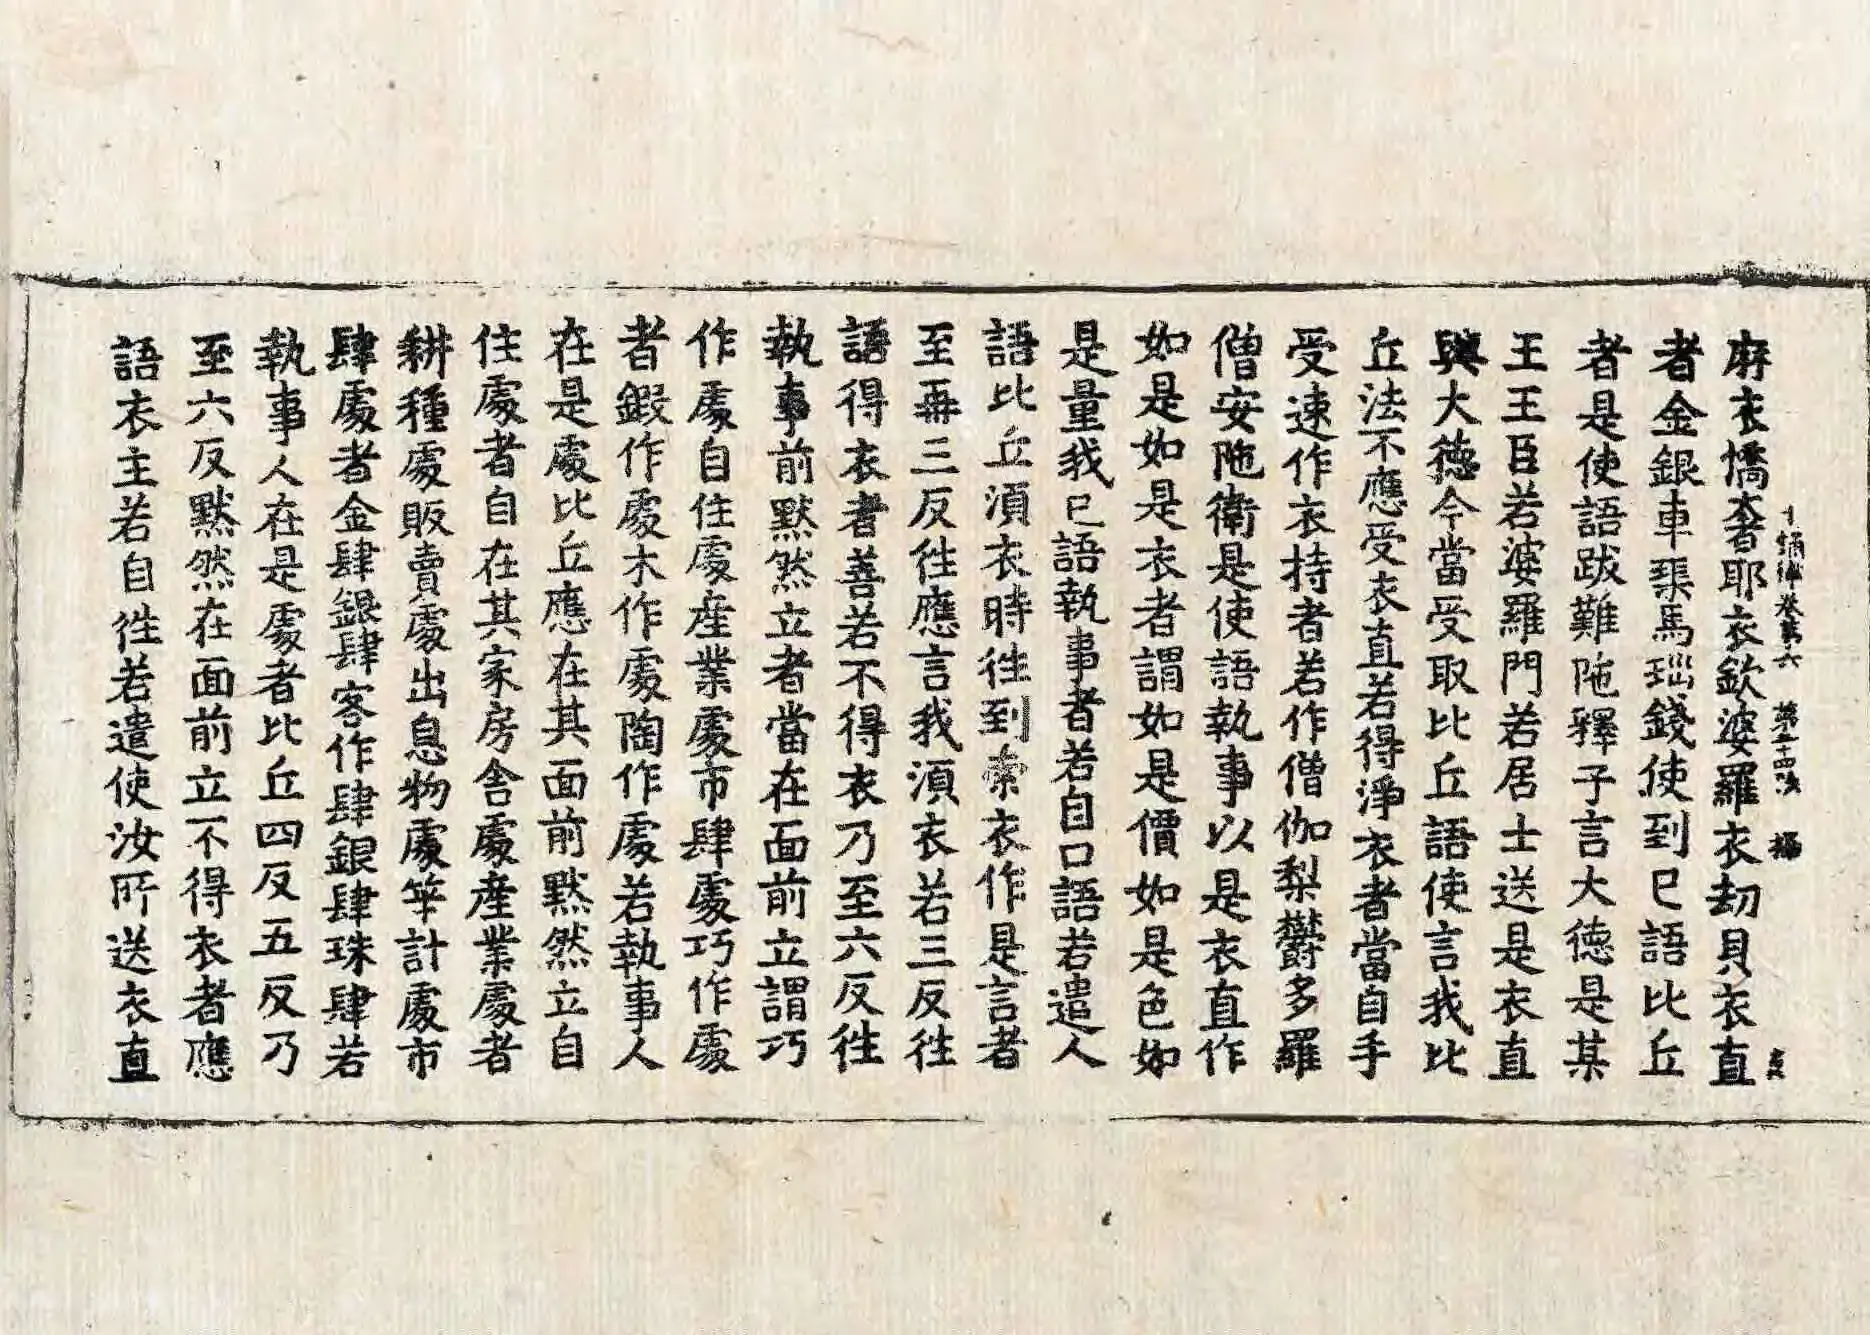 麻衣憍奢耶衣欽婆羅衣劫貝衣直
十誦律卷第六 第二十四張 楊
者金銀車渠馬瑙錢使到已語比丘
者是使語跋難陁釋子言大德是某
王王臣若婆羅門若居士送是衣直
與大德今當受取比丘語使言我比
丘法不應受衣直若得淨衣者當自手
受速作衣持者若作僧伽梨欝多羅
僧安陁衛是使語執事以是衣直作
如是如是衣者謂如是價如是色如
是量我已語執事者若自口語若遣人
語比丘湏衣時徃到索衣作是言者
至再三反徃應言我湏衣若三反徃
語得衣者善若不得衣乃至六反徃
執事前默然立者當在面前立謂巧
作處自住處産業處市肆處巧作處
者鍜作處木作處陶作處若執事人
在是處比丘應在其面前默然立自
住處者自在其家房舍處産業處者
耕種處販賣處出息物處筭計處市
肆處者金肆銀肆客作肆銀肆珠肆若
執事人在是處者比丘四反五反乃
至六反默然在面前立不得衣者應
語衣主若自徃若遣使汝所送衣直